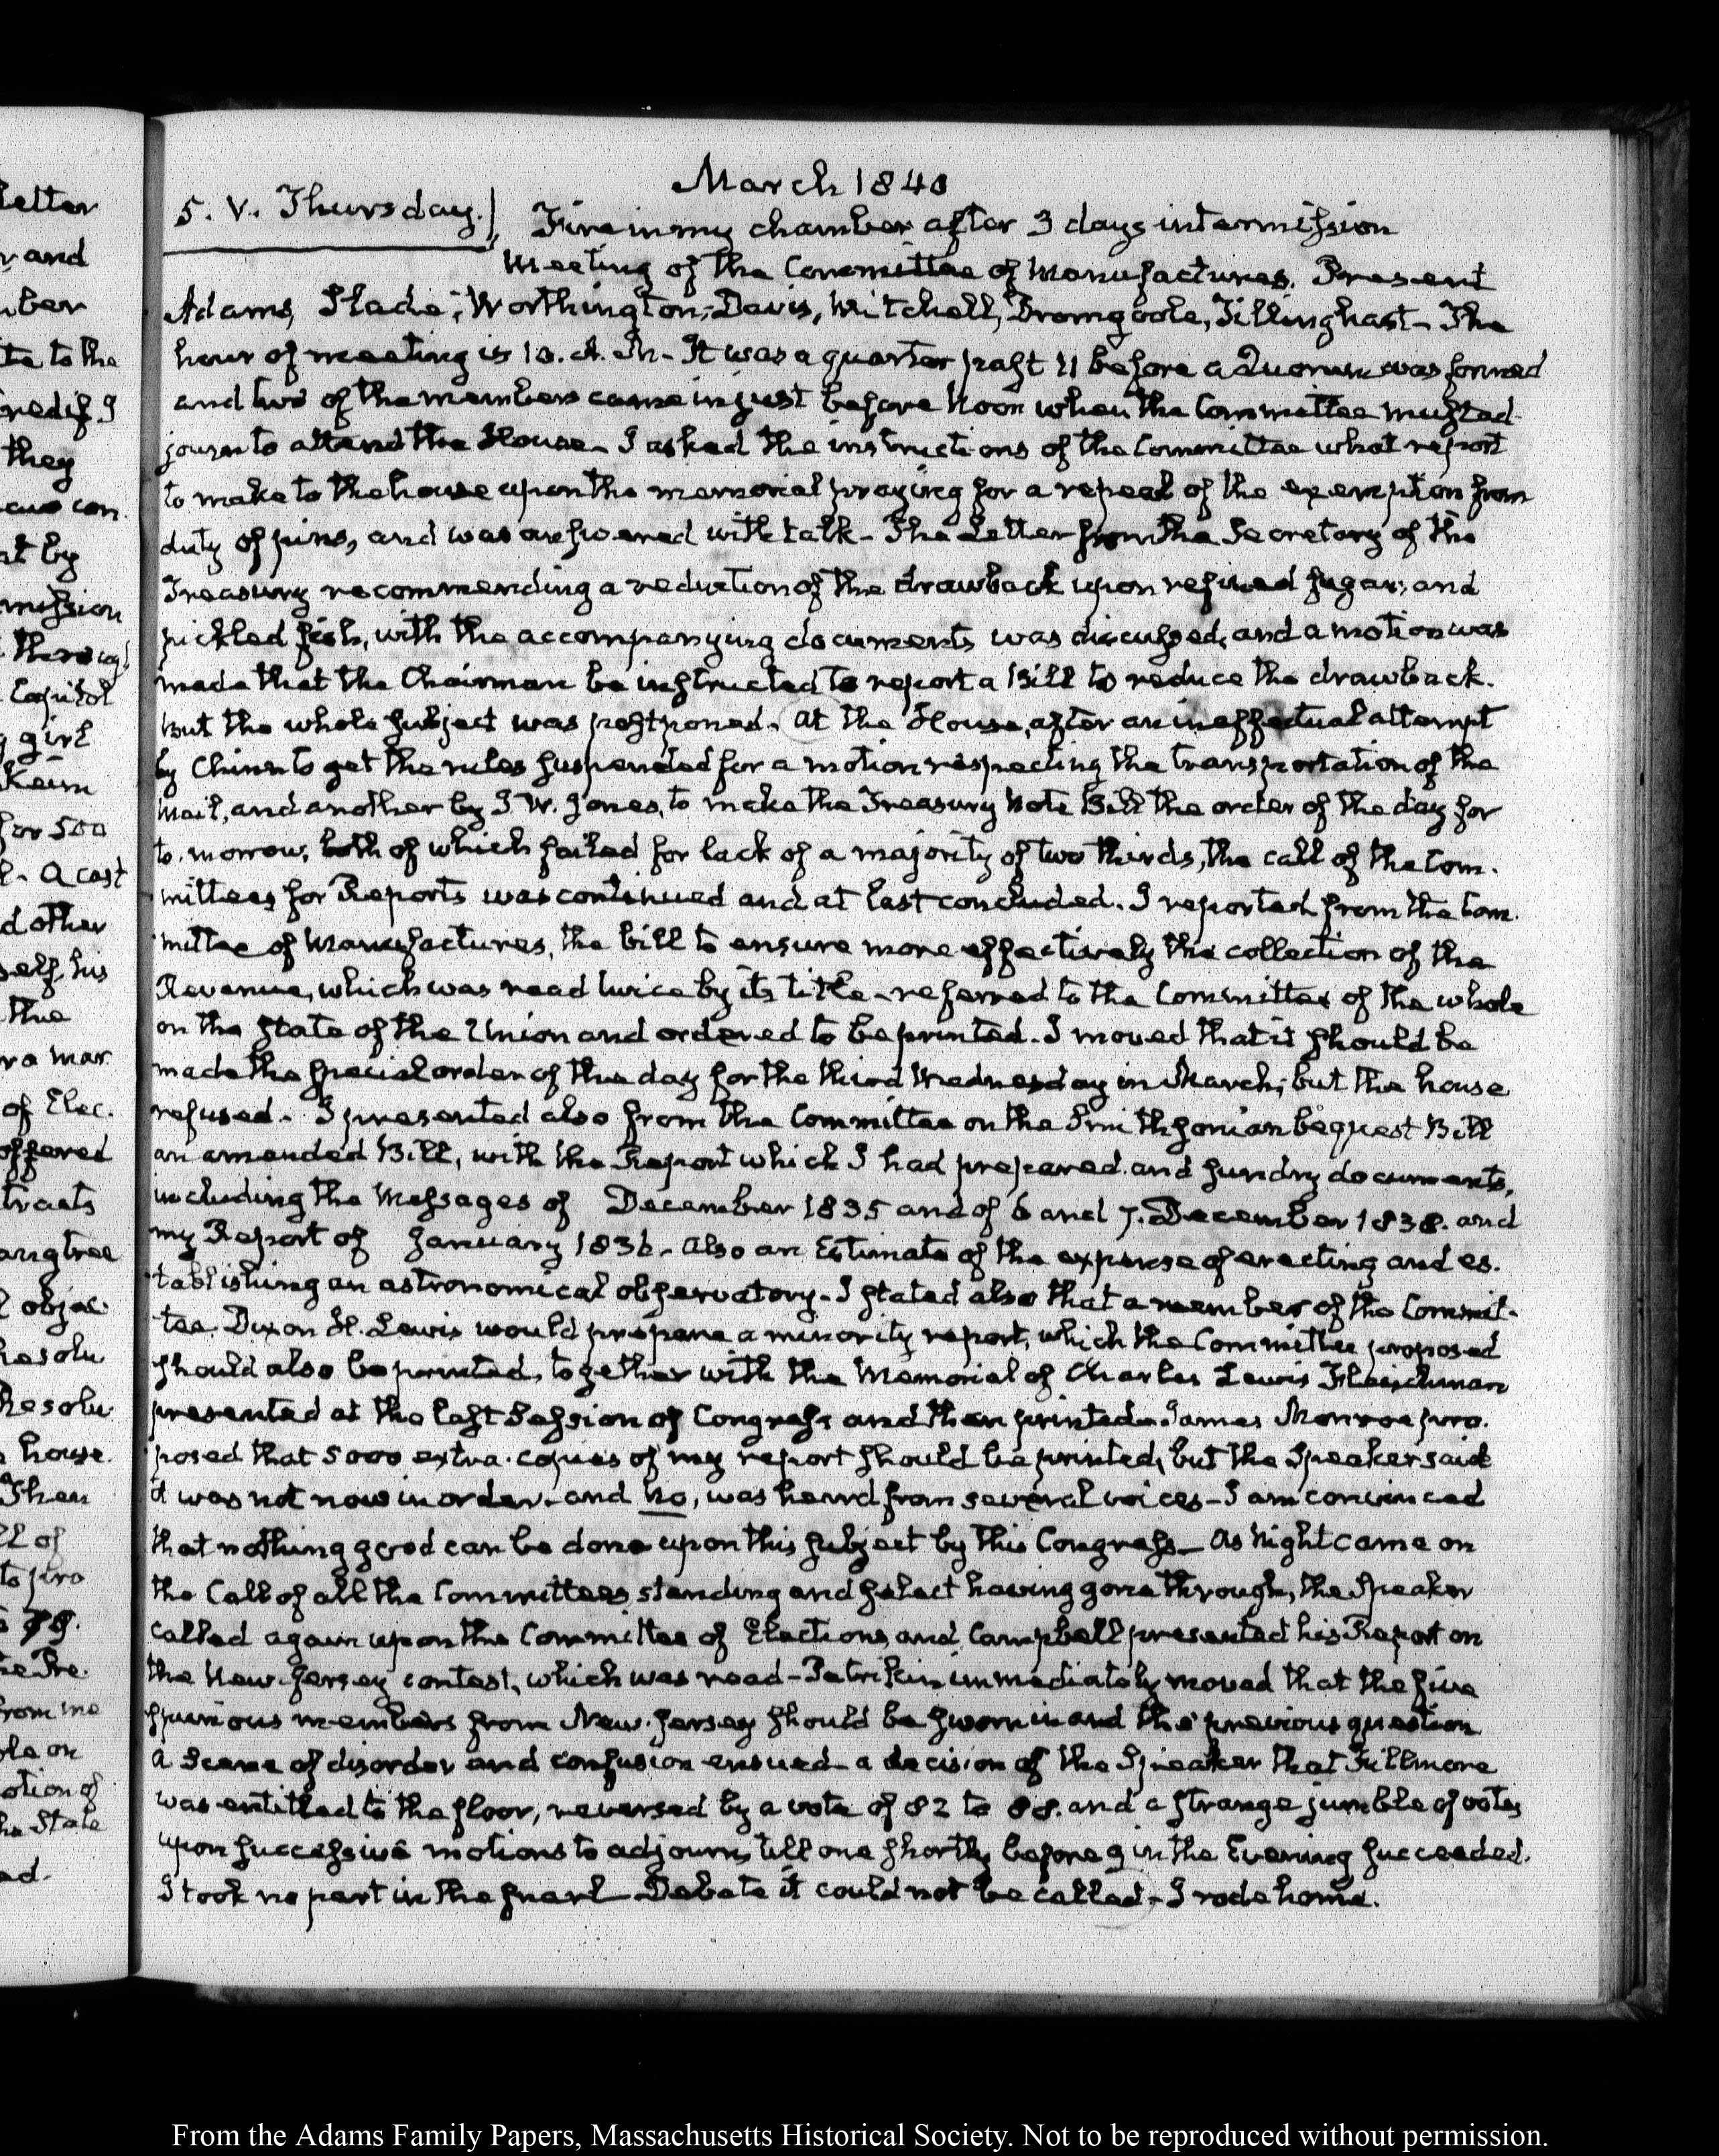 letter
and
ber
te to the
red if I
they
cus con.
at by
mission
through
Capitol
girl
Keim
for 500
A cast
d other
self his
the
ra mar
of Elec.
offered
tracts
angtree
objec
Resolu
Resolu
house.
Then
ll of
to pro
79.
the Pre.
from me
ble on
otion of
he State
ed.
March 1840
5. V. Thursday.
Fire in my chamber after 3 days intermission
Meeting of the Committee of Manufactures. Present
Adams, Slade, Worthington, Davis, Mitchell, Dromgoole, Tillinghast - The
hour of meeting is 10. A. M - It was a quarter past 11 before a Quorum was formed
and two of the members came in just before Noon when the Committee must ad-
journ to attend the House - I asked the instructions of the Committee what report
to make to the house upon the memorial praying for a repeal of the exemption from
duty of pins, and was answered with talk - The Letter from the Secretary of the
Treasury recommending a reduction of the drawback upon refined sugar, and
pickled fish, with the accompanying documents was discussed, and a motion was
made that the Chairman be instructed to report a Bill to reduce the drawback.
But the whole subject was postponed. At the House, after an ineffectual attempt
by Chinn to get the rules suspended for a motion respecting the transportation of the
Mail, and another by J. W. Jones, to make the Treasury Note Bill the order of the day for
to-morrow, both of which failed for lack of a majority of two thirds, the call of the Com-
mittees for Reports was continued and at last concluded. I reported from the Com-
mittee of Manufactures, the bill to ensure more effectively the collection of the
Revenue, which was read twice by its title - referred to the Committee of the whole
on the state of the Union and ordered to be printed. I moved that it should be
made the special order of the day for the third Wednesday in March; but the house
refused. - I presented also from the Committee on the Smithsonian bequest Bill
an amended Bill, with the Report which I had prepared and sundry documents,
including the Messages of December 1835 and of 6 and 7. December 1838. and
my Report of January 1836 - Also an Estimate of the expense of erecting and es-
tablishing an astronomical observatory - I stated also that a member of the Commit-
tee. Dixon H. Lewis would prepare a minority report, which the Committee proposed
should also be printed, together with the Memorial of Charles Lewis Fleischman
presented at the last Session of Congress and then printed - James Monroe pro-
posed that 5000 extra copies of my report should be printed, but the Speaker said
it was not now in order - and No, was heard from several voices - I am convinced
that nothing good can be done upon this subject by this Congress - As Night came on
the Call of all the Committees standing and select having gone through, the Speaker
called again upon the Committee of Elections, and Campbell presented his Report on
the New-Jersey contest, which was read - Petrikin immediately moved that the five
spurious members from New-Jersey should be sworn in and the previous question
A Scene of disorder and confusion ensued - a decision of the Speaker that Fillmore
was entitled to the floor, reversed by a vote of 82 to 88. and a strange jumble of votes
upon successive motions to adjourn, till one shortly before 9 in the Evening succeeded.
I took no part in the snarl - Debate it could not be called - I rode home.
From the Adams Family Papers, Massachusetts Historical Society. Not to be reproduced without permission.